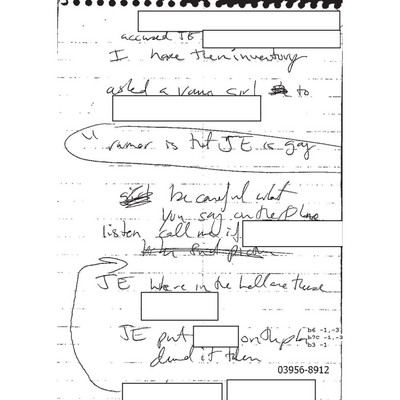 accused JE
I have then inventory
asked a young girl to
" rumor is that JE is gay
be careful what
you say on the phone
listen, call me if
JE where in the hell are these
JE put on the ph
denied it then
b6 -1,-3
b7C -1,-3
b3 -1
03956-8912